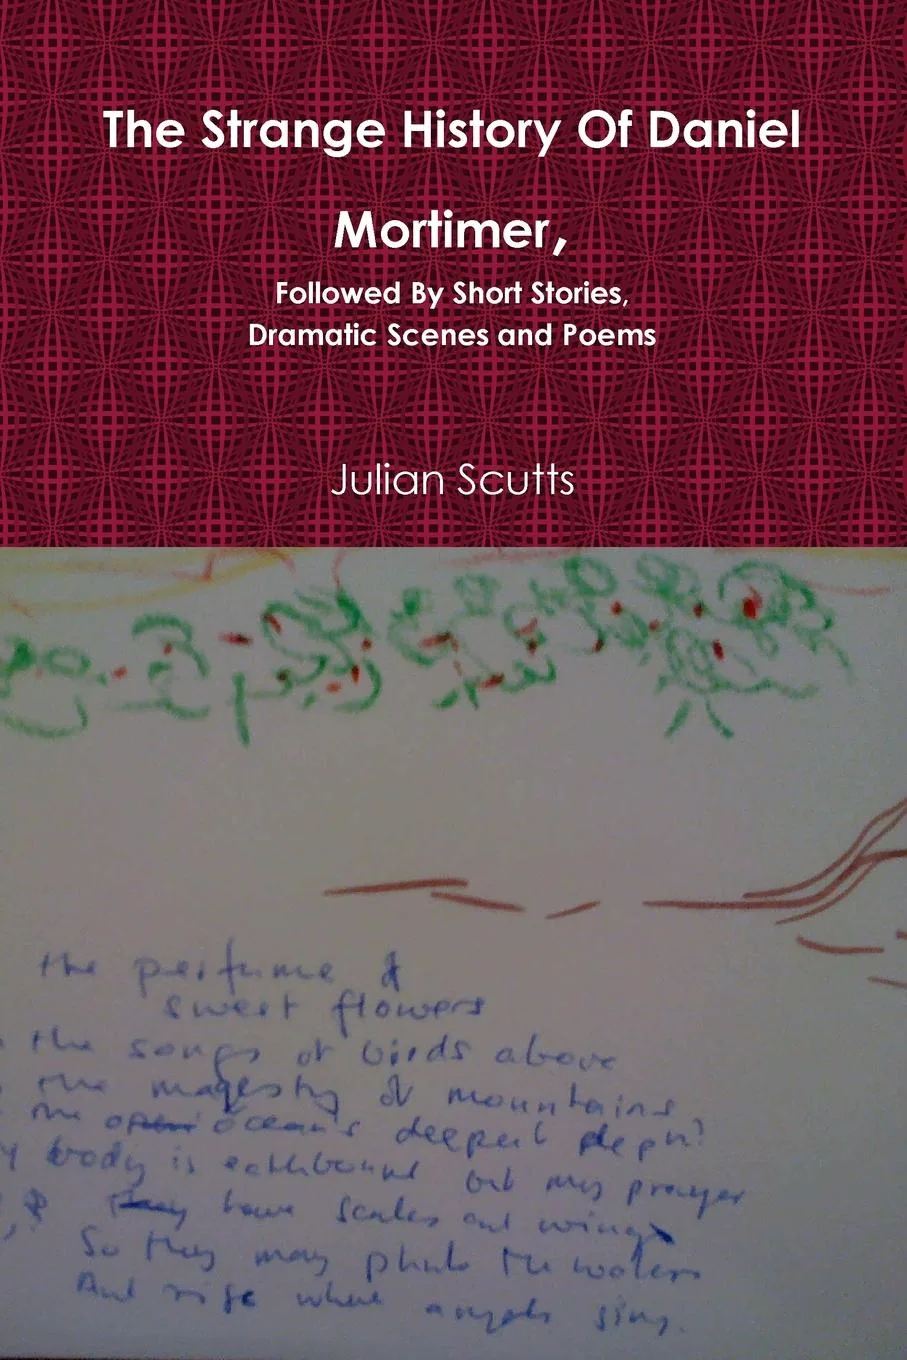 The Strange History Of Daniel
Mortimer,
Followed By Short Stories,
Dramatic Scenes and Poems
Julian Scutts
the perfume of
sweet flowers
the songs of birds above
the magesty of mountains
the ocean's deepest
body is eathbound but my prayer
have scales and wings
So they may the waters
And rise where angels sing.